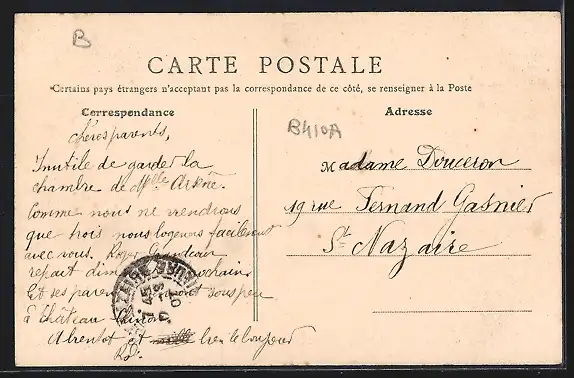 B
CARTE POSTALE
Certains pays étrangers n'acceptant pas la correspondance de ce côté, se renseigner à la Poste
Correspondance
Chers parents,
Inutile de garder la
chambre de Melle
Comme nous ne viendrons
que trois nous logerons facilement
avec vous. Roger
repart dim prochain
Et ses paren ront sous peu
à Château
A bientôt et
Adresse
B410A
Madame Douceron
19 rue Fernand Gasnier
St Nazaire